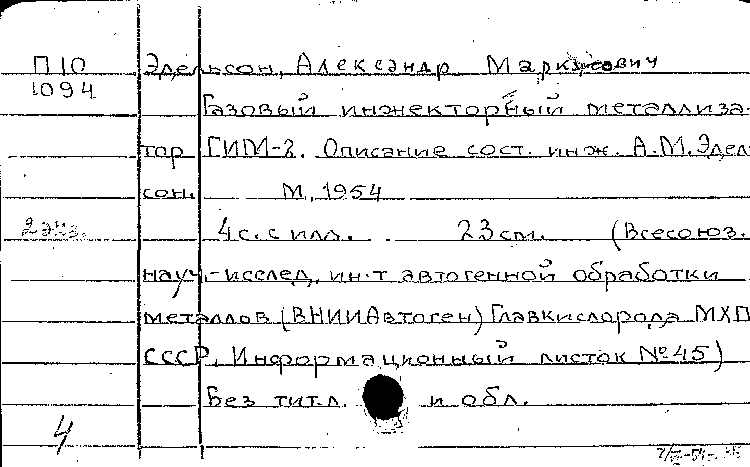 П10 Эдельсон, Александр Маркусович
1094
Газовый инжекторный металлиза-
тор ГИМ-2. Описание сост. инж. А.М.Эдель-
сон. М., 1954
2 экз. 4 с. с илл. 23 см. (Всесоюз.
науч.-исслед. ин-т автогенной обработки
металлов (ВНИИАвтоген) Главкислорода МХП
СССР. Информационный листок № 45)
Без тит. л. и обл.
4